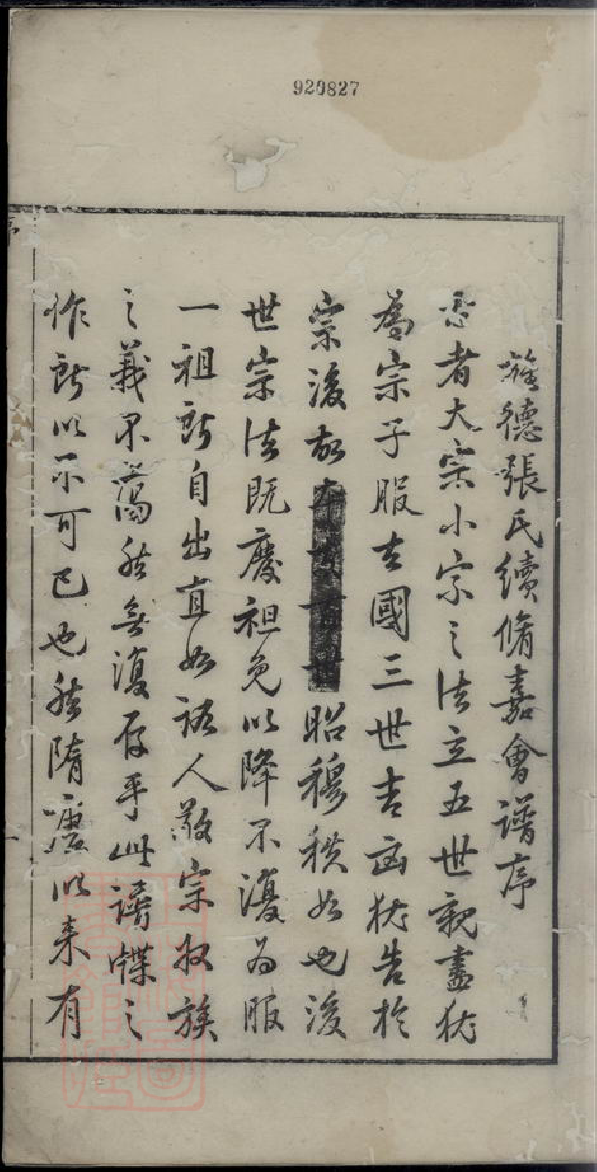 920827
旌德張氏續脩嘉會譜序
古者大宗小宗之法立五世親盡猶
為宗子服去國三世吉凶猶告於
宗後故 昭穆秩如也後
世宗法既廢袒免以降不復為服
一祖所自出直如路人敬宗收族
之義不蕩然無復存乎此譜牒之
作所以不可已也然隋唐以来有